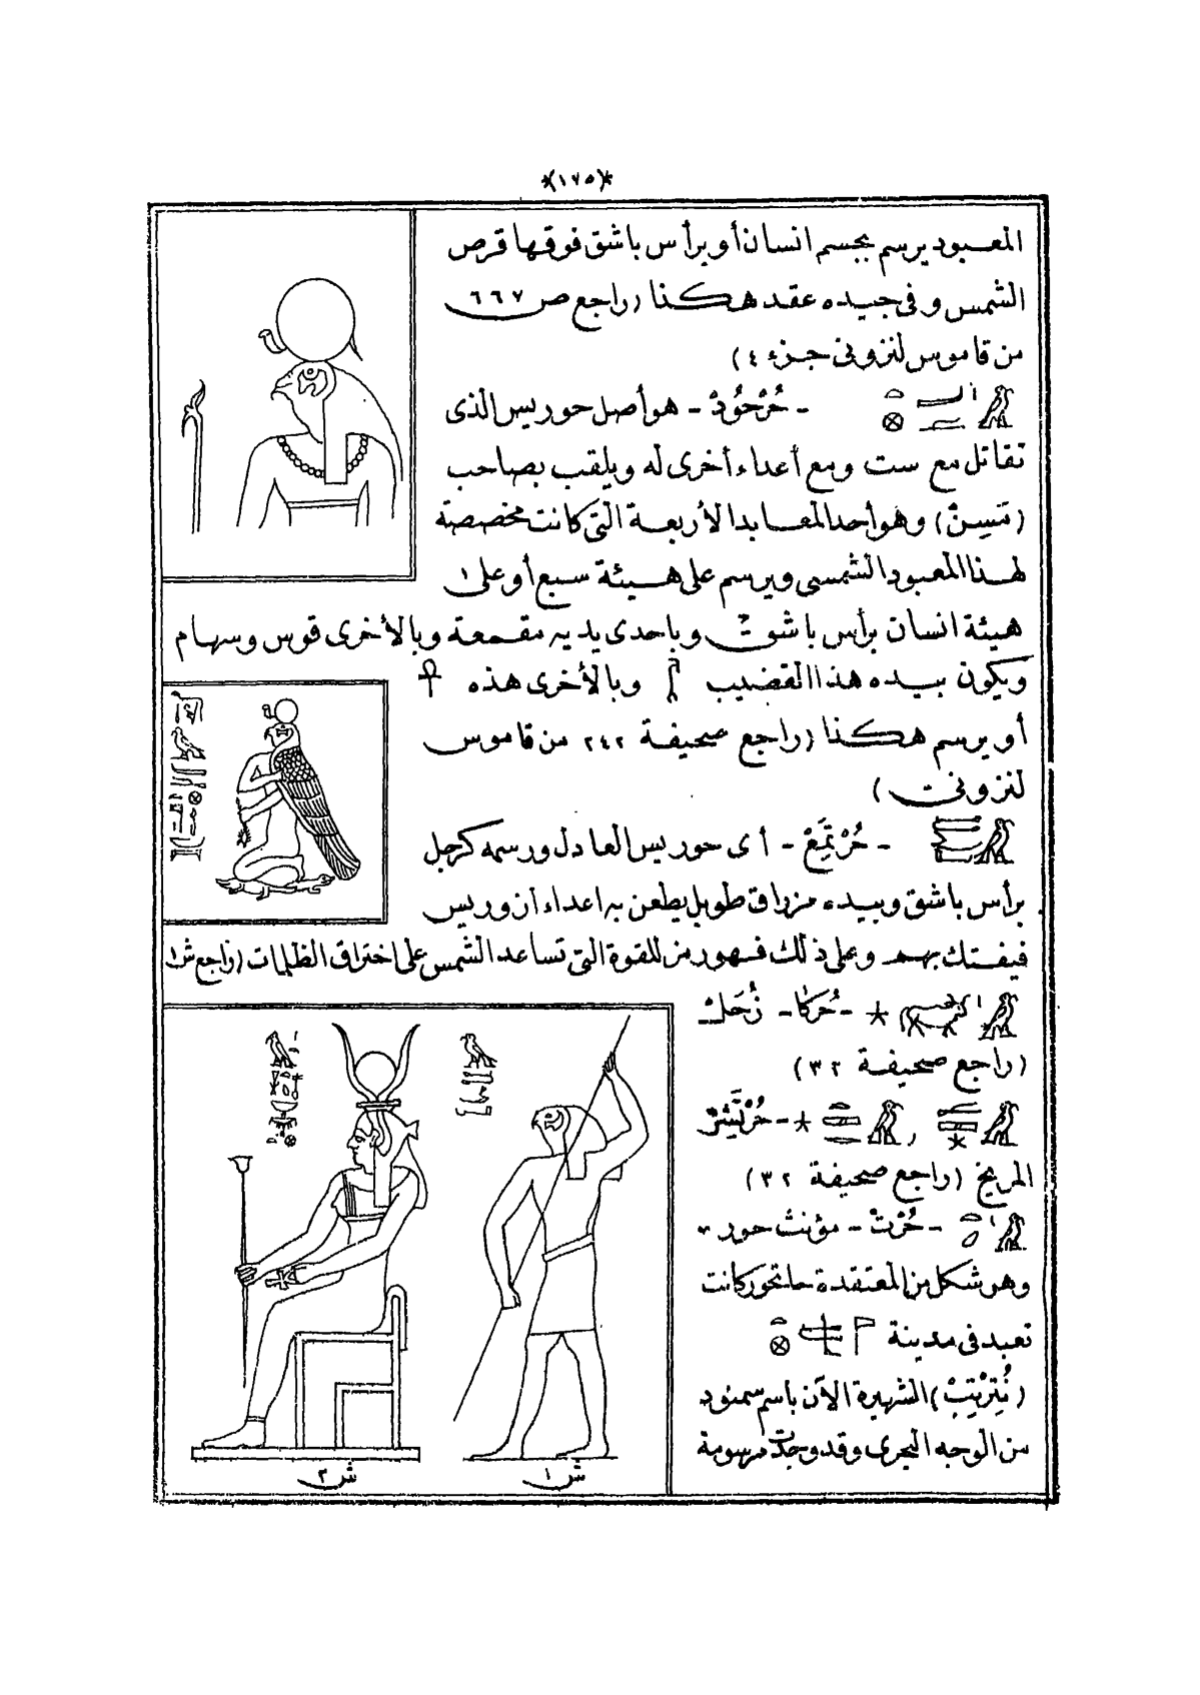 *(١٧٥)*
المعبود يرسم بجسم انسان أو برأس باشق فوقها قرص
الشمس وفى جيده عقد هكذا (راجع ص ٦٦٧
من قاموس لنزونى جزء ٤)
- حُرْحُودْ - هو أصل حوريس الذى
تقاتل مع ست ومع أعداء أخرى له ويلقب بصاحب
(مَسِنْ) وهو أحد المعابد الأربعة التى كانت مخصصة
لهذا المعبود الشمسى ويرسم على هيئة سبع أو على
هيئة انسان برأس باشق وباحدى يديه مقمعة وبالأخرى قوس وسهام
ويكون بيده هذا القضيب وبالأخرى هذه ☥
أو يرسم هكذا (راجع صحيفة ٢٤٢ من قاموس
لنزونى)
- حُرْتَمِعْ - أى حوريس العادل ورسمه كرجل
برأس باشق وبيده مزراق طويل يطعن به اعداء ازوريس
فيفتك بهم وعلى ذلك فهو رمز للقوة التى تساعد الشمس على اختراق الظلمات (راجع ش ١)
★ - حُرَكَا - زُحَل
(راجع صحيفة ٣٢)
★ - حُرْتَشِرْ
المريخ (راجع صحيفة ٣٢)
- حُرْتْ - مؤنث حور
وهو شكل من المعتقدة حاتحور كانت
تعبد فى مدينة
(نُتِرْتِبْ) الشهيرة الآن باسم سمنود
من الوجه البحرى وقد وجدت مرسومة
ش ١
ش ٢